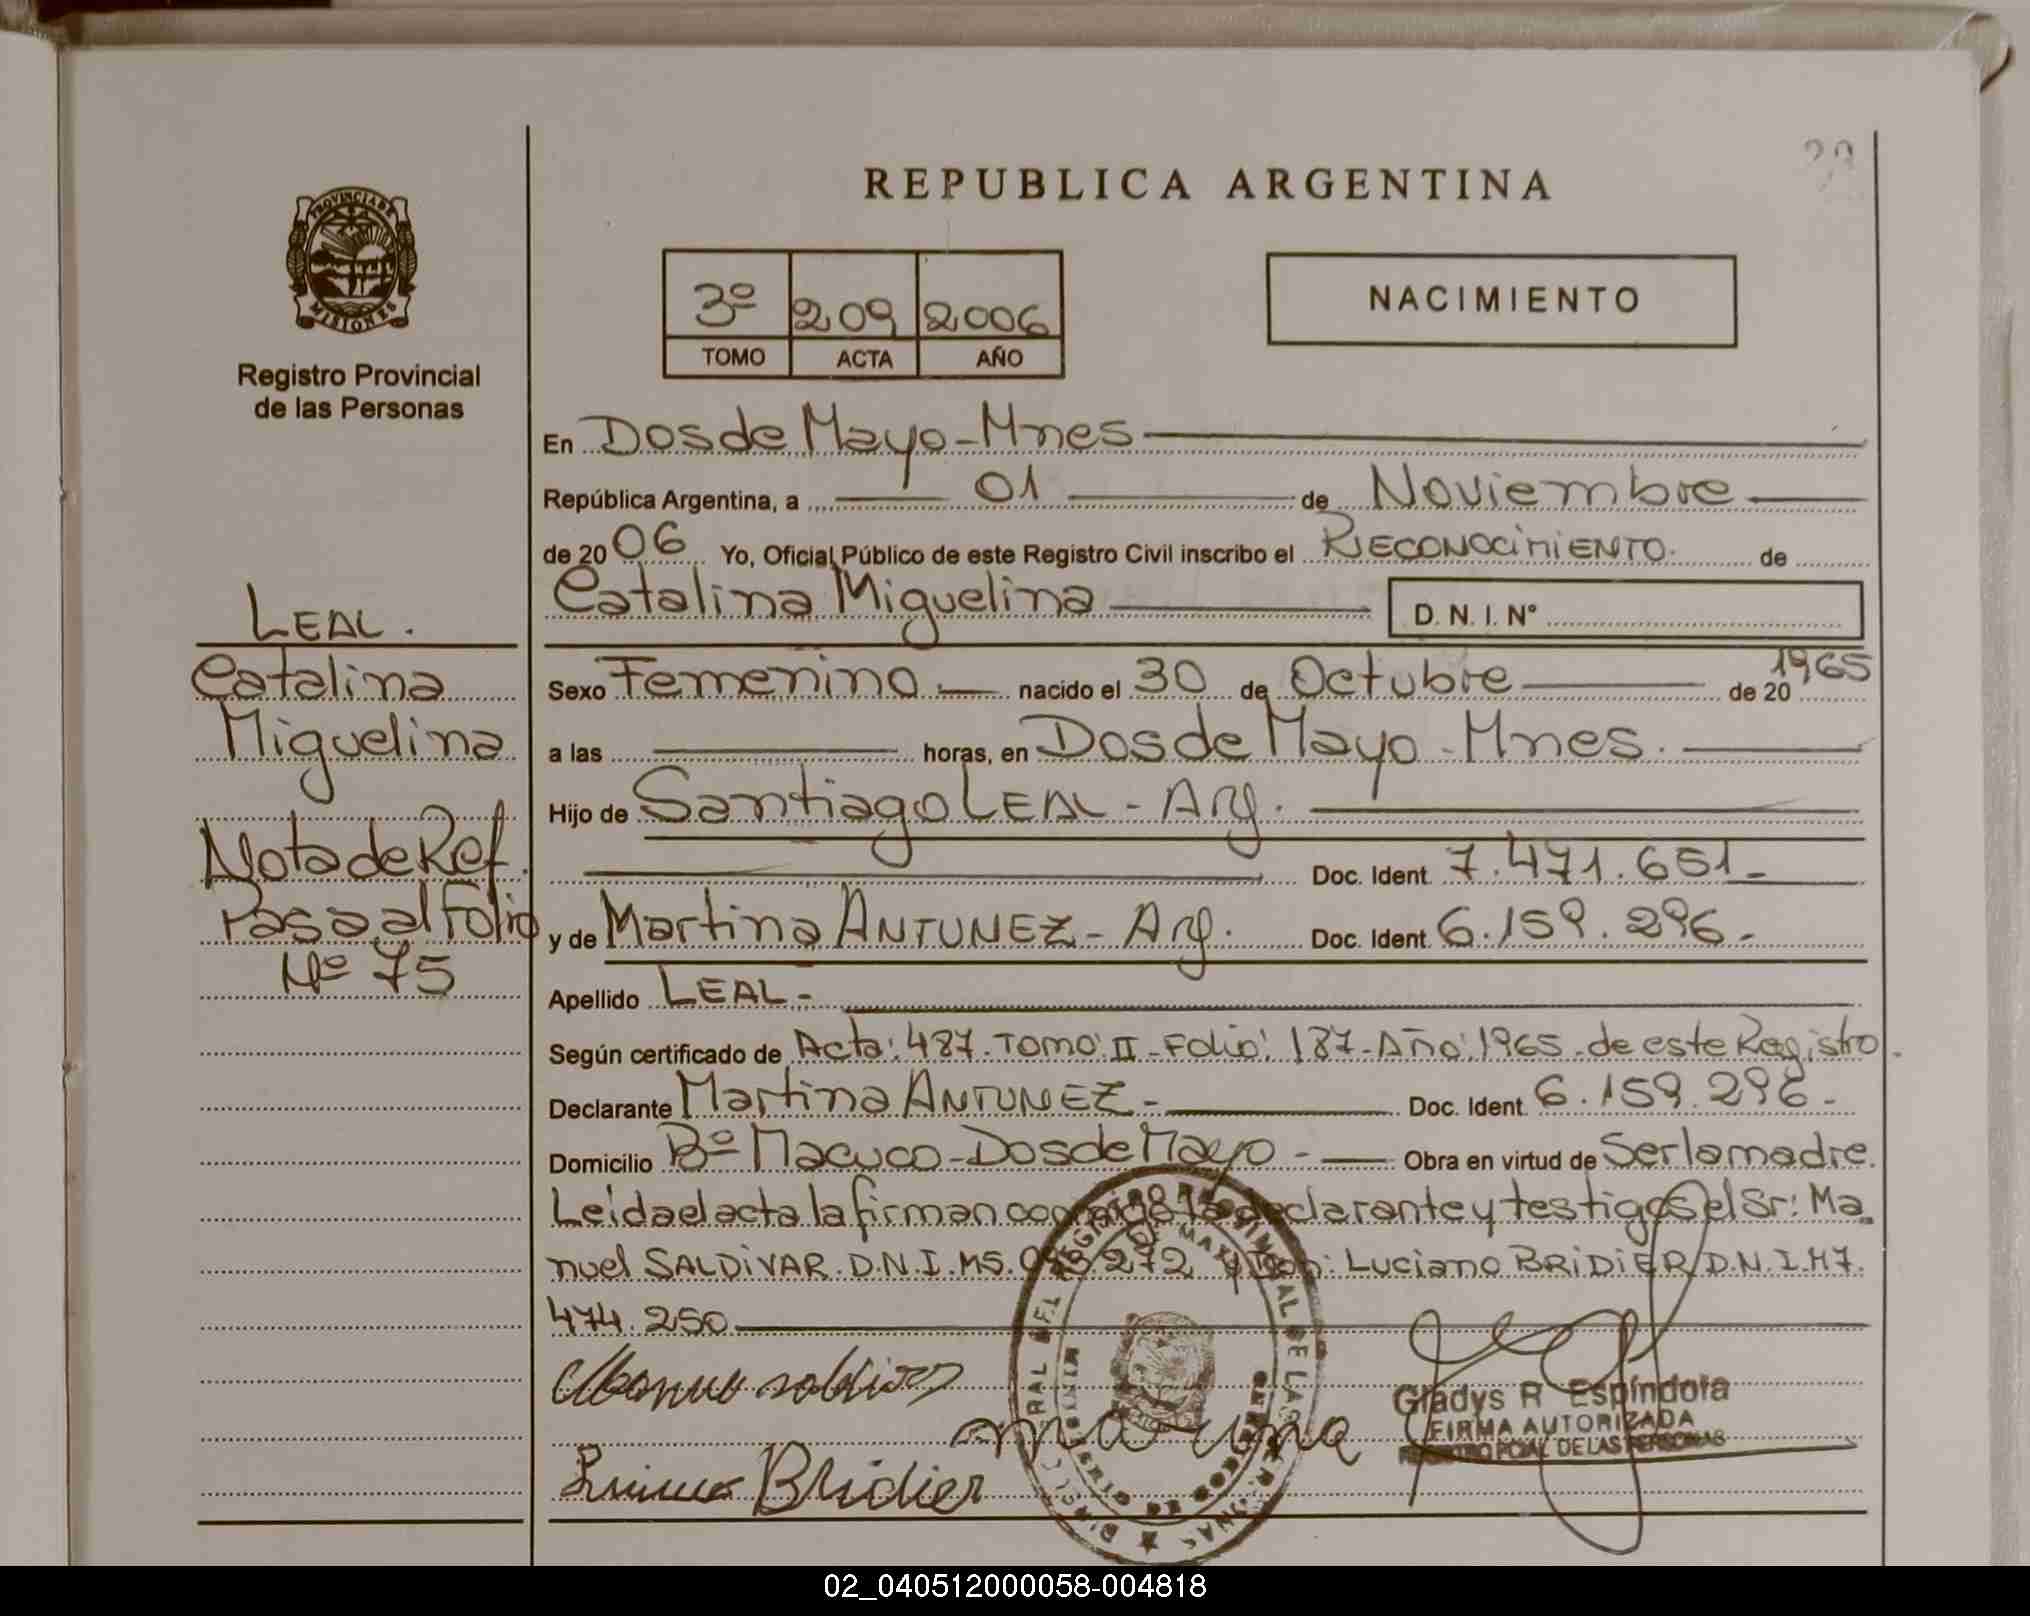 REPUBLICA ARGENTINA
PROVINCIA DE
MISIONES
Registro Provincial
de las Personas
3º 209 2006
TOMO ACTA AÑO
NACIMIENTO
LEAL.
Catalina
Miguelina
Nota de Ref.
Pasa al Folio
Nº 75
En Dos de Mayo - Mnes
República Argentina, a 01 de Noviembre
de 2006 Yo, Oficial Público de este Registro Civil inscribo el RECONOCIMIENTO. de
Catalina Miguelina D. N. I. Nº
Sexo Femenino nacido el 30 de Octubre de 20 1965
a las horas, en Dos de Mayo - Mnes.
Hijo de Santiago LEAL - Arg.
Doc. Ident. 7.471.651-
y de Martina ANTUNEZ - Arg. Doc. Ident. 6.159.296-
Apellido LEAL-
Según certificado de Acta: 487. Tomo: II - Folio: 187 - Año: 1965 - de este Registro.
Declarante Martina ANTUNEZ - Doc. Ident. 6.159.296-
Domicilio Bº Macuco - Dos de Mayo - Obra en virtud de Ser la madre.
Leída el acta la firman conmigo la declarante y testigos el Sr: Ma
nuel SALDIVAR. D.N.I. M5. 272 y Don: Luciano BRIDIER D.N.I. M7.
474.250
Bridier
Gladys R Espíndola
FIRMA AUTORIZADA
REGISTRO PCIAL DE LAS PERSONAS
02_040512000058-004818